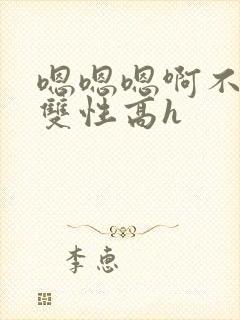 嗯嗯嗯啊不
雙性高h
李惠